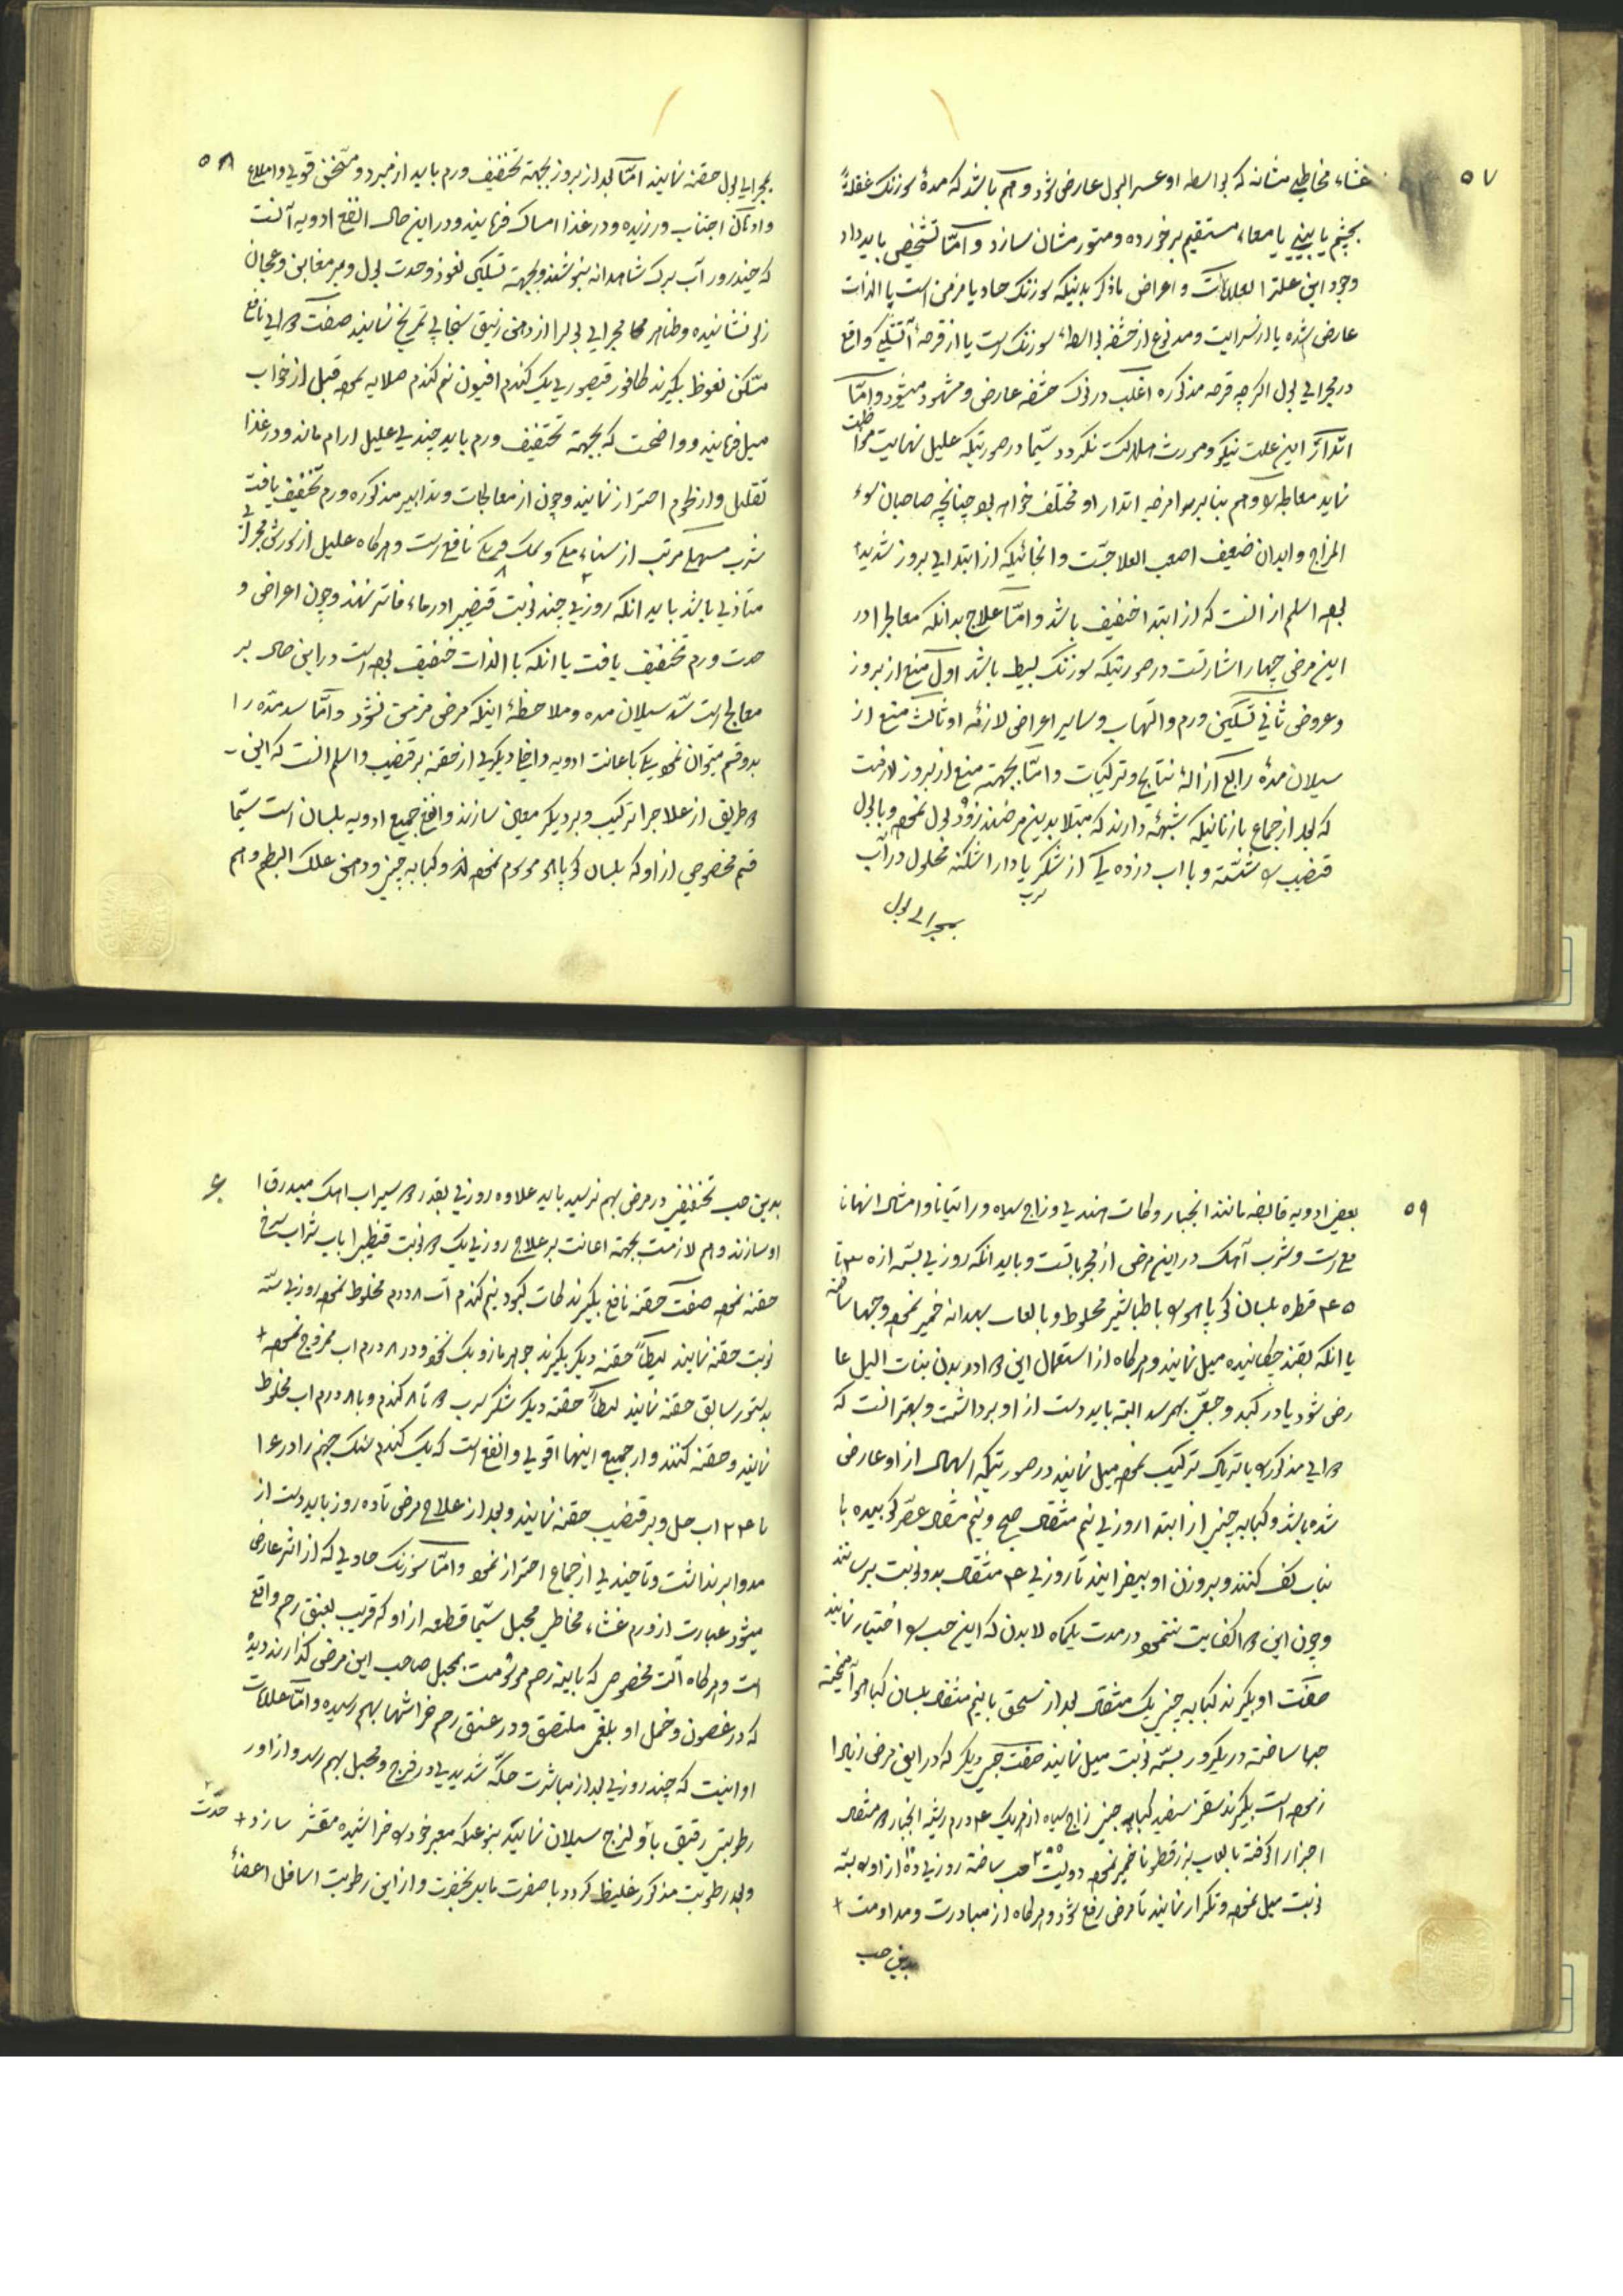 ۵۷
غشاء مخاطی مثانه که بواسطه او عسر البول عارض شود و هم باشد که مدهٔ سوزنک غفلةً
بچشم یا ببینی یا معاء مستقیم برخورده و متورمشان سازد و امّا تشخیص باید داد
وجود این علت را لعلامات و اعراض ماذکر بدنیکه سوزنک حاد یا مزمن است یا الذات
عارض شده یا از سرایت و مدفوع از حشفه بواسطهٔ سوزنک است یا از قرحهٔ آتشکی واقع
در مجرای بول اگرچه قرحه مذکوره اغلب در نزدیک حشفه عارض و مشهود میشود و امّا
انذار این علت نیکو و مورث هلاکت نکردد سیّما در صورتیکه علیل نهایت مواظبت
نماید معالجه را و هم بنابر امزجه انذار او مختلف خواهد بود چنانچه صاحبان سوء
المزاج و ابدان ضعیف اصعب العلاجست و انجائیکه از ابتدای بروز شدید
بوده اسلم از انست که از ابتدا خفیف باشد و امّا علاج بدانکه معالج را در
این مرض چهار اشارتست در صورتیکه سوزنک بسیط باشد اول منع از بروز
و عروض ثانی تسکین ورم و التهاب و سایر اعراض لازمهٔ او ثالث منع از
سیلان مدهٔ رابع ازالهٔ نتایج و ترکیبات و امّا بجهته منع از بروز لازمست
که بعد از جماع با زنانیکه شبهه دارند که مبتلا بدین مرضند زود بول نموده و با بول
قضیب را شسته و با آب دزده یک از شکر یا دارا شکنه محلول در آب
سرب
بمجرای بول
۵۸
بمجرای بول حقنه نمایند امّا بعد از بروز بجهته تخفیف ورم باید از مبرد و مسخن قوی و املاح
و ادهان اجتناب ورزیده و در غذا امساک فرمایند و در این حال انفع ادویه آنست
که چند روز آب برک شاهدانه بنوشند و بجهته تسکین نعوظ و حدت بول و بر مغابن و عجان
زلو نشانیده و ظاهر مجرای بول را از دهن زنیق سنجابی تمریخ نمایند صفت دوای نافع
مسکن نعوظ بگیرند کافور قیصوری یک کندم افیون نیم کندم صلایه نموده قبل از خواب
میل فرمایند و واضحست که بجهته تخفیف ورم باید چندی علیل آرام ماند و در غذا
تقلیل و از لحوم احتراز نمایند و چون از معالجات و تدابیر مذکوره ورم تخفیف یافت
شرب مسهلی مرتب از سناء مکی و نمک فرنکی نافع است و هر کاه علیل از سوزش مجرای
متاذی باشد باید انکه روزی چند نوبت قضیب را در ماء فاتر نهند و چون اعراض و
حدت ورم تخفیف یافت یا انکه با الذات خفیف بوده است در این حال بر
معالج است سدّ سیلان مده و ملاحظهٔ اینکه مرض مزمن نشود و امّا سد مدّه را
بدو قسم میتوان نمود یکی باعانت ادویه داخله و دیگری از حقنه بر قضیب و اسلم انست که این
دو طریق از علاج را ترکیب و بر دیکر معاون سازند و انفع جمیع ادویه بلسان است سیّما
قسم مخصوصی از او که بلسان کوپاهو موسوم نموده اند و کبابه چینی و دهن علک البطم و هم
۵۹
بعضی ادویه قابضه مانند انجبار و کات هندی و زاج سیاه و راتیانا و امثال انها نافع
است و شرب آهک در این مرض از مجرباتست و باید انکه روزی بسه از ۳۰ تا
۴۵ قطره بلسان کوپاهو را با طباشیر مخلوط و با لعاب بهدانه خمیر نموده و حبها ساخته
یا انکه بقند چکانیده میل نمایند و هر کاه از استعمال این دوا در بدن بنات اللیل عا
رض شود یا در کبد وجعی بهم رسد البته باید دست از او برداشت و بهتر انست که
دوای مذکور را با تریاک ترکیب نموده میل نمایند در صورتیکه اسهال از او عارض
شده باشد و کبابه چینی از ابتدا روزی نیم مثقال صبح و نیم مثقال عصر کوبیده با
نبات کف کنند و بر وزن او بیفزایند تا روزی ۴ مثقال بدو نوبت برسانند
و چون این دوا کفایت ننمود در مدت یکماه لابدن که این حب را اختیار نمایند
صفت او بگیرند کبابه چینی یک مثقال بعد از سحق با نیم مثقال بلسان کپاهو آمیخته
حبها ساخته در یکروز بسه نوبت میل نمایند صفت حبی دیگر که در این مرض زیاد
ازموده است بگیرند سقز سفید کبابه چینی زاج سیاه از هر یک ۴ درم ریشه انجبار ۲ مثقال
اجزا را کوفته با لعاب بزر قطونا خمیر نموده دویست ۲۰۰ حب ساخته روزی ده ۱۰ از او را بسه
نوبت میل نموده و تکرار نمایند تا مرض رفع شود و هر کاه از مبادرت و مداومت
بدین حب
۶۰
بدین حب تخفیفی در مرض بهم نرسید باید علاوه روزی بقدر دو سیر آب اهک مبدرق
او سازند و هم لازمست بجهته اعانت بر علاج روزی یک دو نوبت قضیب را با شراب سرخ
حقنه نموده صفت حقنه نافع بگیرند کات کبود نیم کندم آب ۸ درم مخلوط نموده روزی سه
نوبت حقنه نمایند ایضاً حقنه دیگر بگیرند جوهر مازو یک نخود در ۸ درم آب ممزوج نموده
بدستور سابق حقنه نمایند ایضاً حقنه دیگر شکر سرب ۲ تا ۸ کندم و با ۸ درم آب مخلوط
نمایند و حقنه کنند و از جمیع اینها اقوی و انفع است که یک کندم سنک جهنم را در ۱۶
تا ۳۲ آب حل و بر قضیب حقنه نمایند و بعد از علاج مرض تا ده روز باید دست از
مداوا بر نداشت و تا چندی از جماع احتراز نمود و امّا سوزنک حادی که از اناث عارض
میشود عبارت از ورم غشاء مخاطی مهبل سیّما قطعه از او که قریب بعنق رحم واقع
است و هر کاه آلت مخصوص که بآینه رحم موسومست بمهبل صاحب این مرض گذارند دیده
که در غصون و خمل او بلغمی ملتصق و در عنق رحم خراشها بهم رسیده و امّا علامات
او اینست که چند روزی بعد از مباشرت حکّه شدیدی در فرج و مهبل بهم رسد و از او ر
رطوبتی رقیق با لزج سیلان نماید بنوعیکه معبر خود را خراشیده مقشر سازد حدّت
و بعد رطوبت مذکور غلیظ کردد با صفرت مایل بخضرت و از این رطوبت اسافل اعضاء